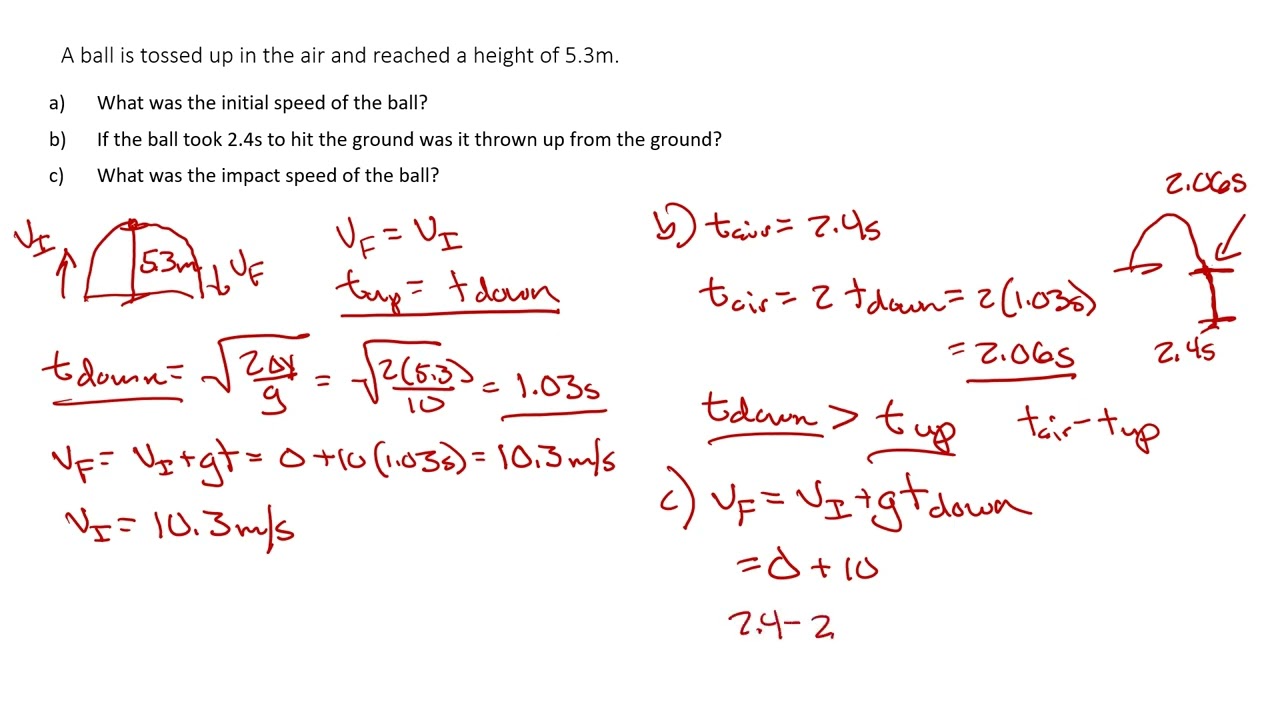 A ball is tossed up in the air and reached a height of 5.3m.
a) What was the initial speed of the ball?
b) If the ball took 2.4s to hit the ground was it thrown up from the ground?
c) What was the impact speed of the ball?
V_I 5.3m V_F
V_F = V_I
t_up = t_down
t_down = √(2Δy/g) = √(2(5.3)/10) = 1.03s
V_F = V_I + gt = 0 + 10(1.03s) = 10.3m/s
V_I = 10.3m/s
b) t_air = 2.4s
t_air = 2 t_down = 2(1.03s)
= 2.06s
2.06s
2.4s
t_down > t_up t_air - t_up
c) V_F = V_I + gt_down
= 0 + 10
2.4 - 2